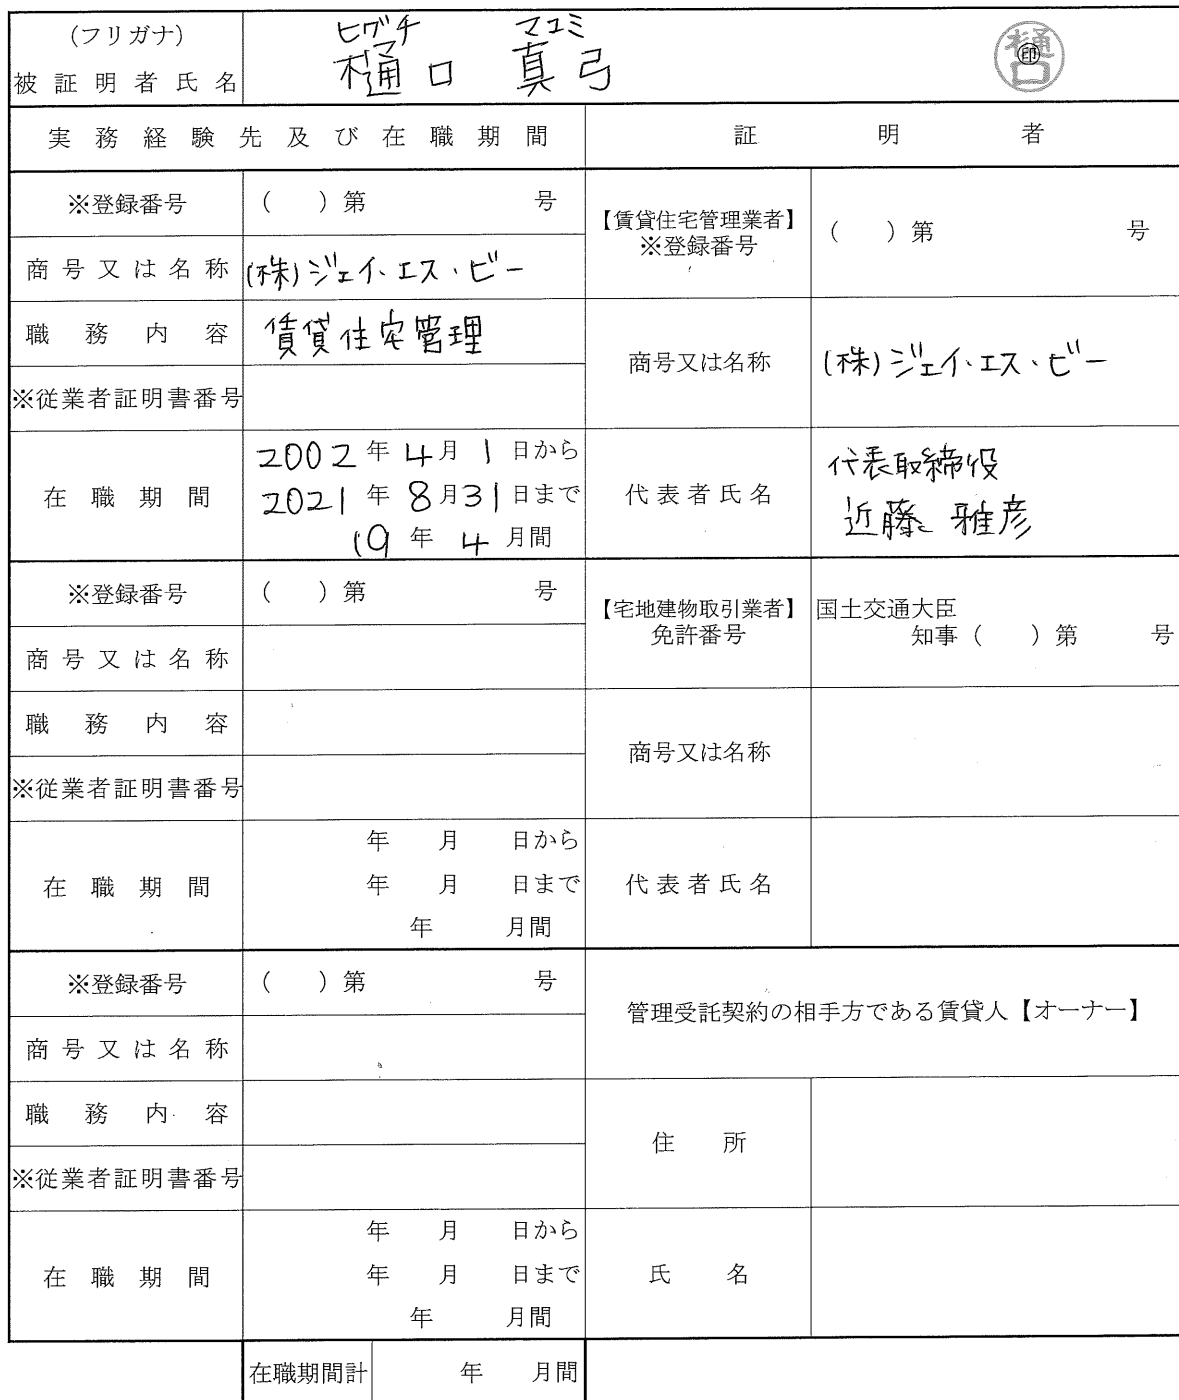 (フリガナ) ヒグチ マユミ
被証明者氏名 樋口 真弓 ㊞ 樋口
実務経験先及び在職期間 証明者
※登録番号 ( )第 号
【賃貸住宅管理業者】
※登録番号 ( )第 号
商号又は名称 (株)ジェイ・エス・ビー
職務内容 賃貸住宅管理
商号又は名称 (株)ジェイ・エス・ビー
※従業者証明書番号
在職期間
2002年4月1日から
2021年8月31日まで
19年4月間
代表者氏名
代表取締役
近藤 雅彦
※登録番号 ( )第 号
【宅地建物取引業者】
免許番号
国土交通大臣
知事( )第 号
商号又は名称
職務内容
商号又は名称
※従業者証明書番号
在職期間
年 月 日から
年 月 日まで
年 月間
代表者氏名
※登録番号 ( )第 号
管理受託契約の相手方である賃貸人【オーナー】
商号又は名称
職務内容
住所
※従業者証明書番号
在職期間
年 月 日から
年 月 日まで
年 月間
氏名
在職期間計 年 月間